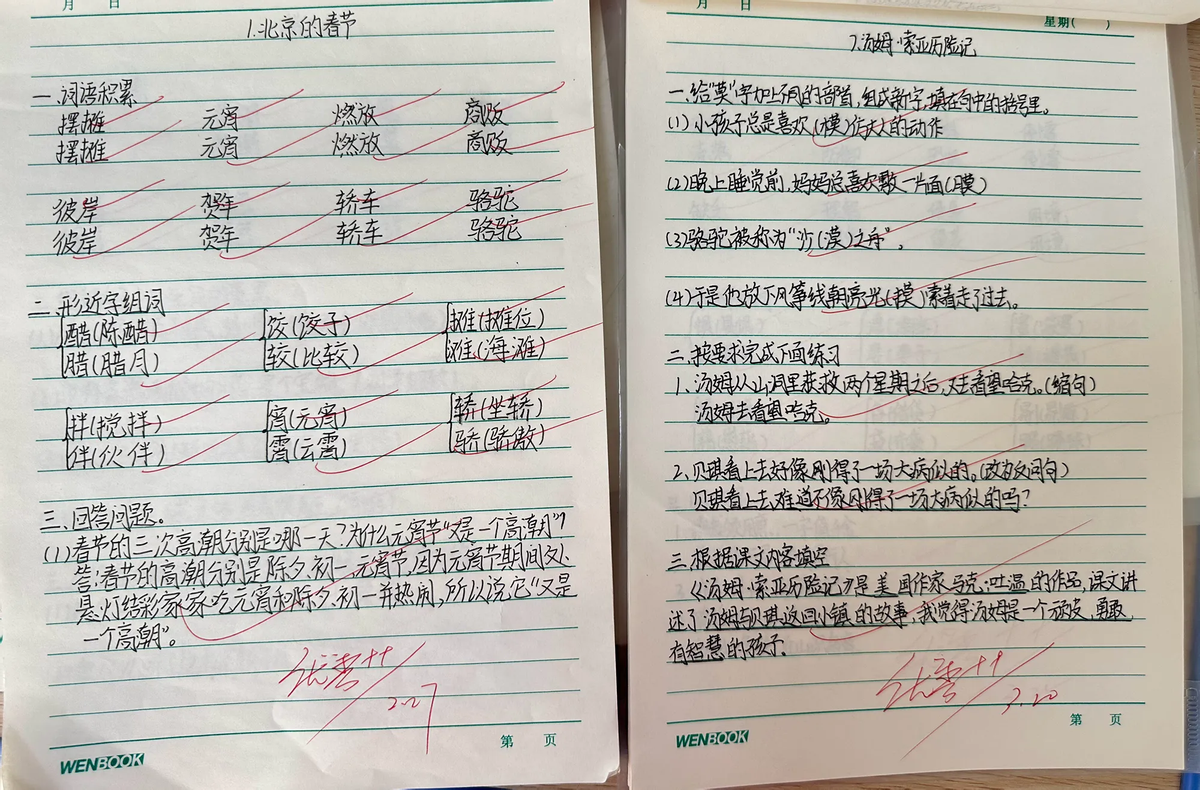 月 日
1.北京的春节
一.词语积累
摆摊 元宵 燃放 商贩
摆摊 元宵 燃放 商贩
彼岸 贺年 轿车 骆驼
彼岸 贺年 轿车 骆驼
二.形近字组词
醋(陈醋) 饺(饺子) 摊(摊位)
腊(腊月) 较(比较) 滩(海滩)
拌(搅拌) 宵(元宵) 轿(坐轿)
伴(伙伴) 霄(云霄) 骄(骄傲)
三.回答问题。
(1)春节的三次高潮分别是哪一天?为什么元宵节"又是一个高潮"?
答:春节的高潮分别是除夕.初一.元宵节,因为元宵节期间处处
悬灯结彩家家吃元宵和除夕.初一并热闹,所以说,它"又是
一个高潮"。
优秀++
3.07
第 页
WENBOOK
月 日
星期( )
7.汤姆·索亚历险记
一.给"莫"字加上不同的部首,组成新字,填在句中的括号里。
(1)小孩子总是喜欢(模)仿大人的动作
(2)晚上睡觉前,妈妈总喜欢敷一片面(膜)
(3)骆驼被称为"沙(漠)之舟"。
(4)于是他放下风筝线朝亮光(摸)索着走了过去。
二.按要求完成下面练习
1.汤姆从山洞里获救两个星期之后,去看望哈克。(缩句)
汤姆去看望哈克。
2.贝琪看上去好像刚得了一场大病似的。(改为反问句)
贝琪看上去难道不像刚得了一场大病似的吗?
三.根据课文内容填空
《汤姆·索亚历险记》是美国作家马克.吐温的作品,课文讲
述了汤姆与贝琪这回小镇的故事,我觉得汤姆是一个顽皮,勇敢,
有智慧的孩子.
优秀++
3.20
第 页
WENBOOK